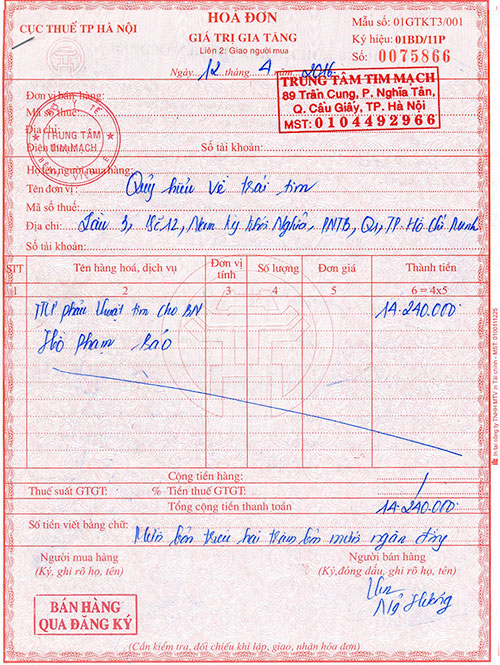 CỤC THUẾ TP HÀ NỘI
HOÁ ĐƠN
GIÁ TRỊ GIA TĂNG
Liên 2: Giao người mua
Ngày 12 tháng 4 năm 2016
Mẫu số: 01GTKT3/001
Ký hiệu: 01BD/11P
Số: 0075866
TRUNG TÂM TIM MẠCH
89 Trần Cung, P. Nghĩa Tân,
Q. Cầu Giấy, TP. Hà Nội
MST: 0104492966
Đơn vị bán hàng:
Mã số thuế:
Địa chỉ:
Điện thoại:
Số tài khoản:
Y TẾ
TRUNG TÂM
TIM MẠCH
Họ tên người mua hàng:
Tên đơn vị: Quỹ hiểu về trái tim
Mã số thuế:
Địa chỉ: Lầu 3, 12, Nam kỳ khởi Nghĩa, PNTB, Q1, TP Hồ Chí Minh
Số tài khoản:
STT Tên hàng hoá, dịch vụ Đơn vị tính Số lượng Đơn giá Thành tiền
1 2 3 4 5 6 = 4x5
phẫu thuật tim cho BN 14.240.000
Hồ Phạm Bảo
Cộng tiền hàng: /
Thuế suất GTGT: % Tiền thuế GTGT:
Tổng cộng tiền thanh toán 14.240.000
Số tiền viết bằng chữ: Mười bốn triệu hai trăm bốn mươi ngàn đồng
Người mua hàng
(Ký, ghi rõ họ, tên)
Người bán hàng
(Ký, đóng dấu, ghi rõ họ, tên)
BÁN HÀNG
QUA ĐĂNG KÝ
Hương
(Cần kiểm tra, đối chiếu khi lập, giao, nhận hóa đơn)